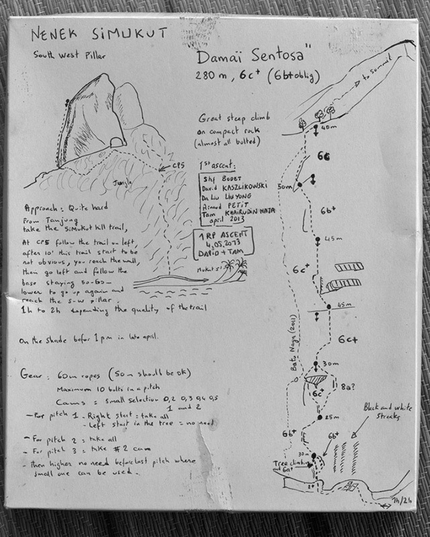 NENEK SIMUKUT
South West Pillar
"Damaï Sentosa"
280 m, 6c+ (6b+ oblig)
to summit
Great steep climb
on compact rock
(almost all bolted)
CP5
Jungle
1st ascent:
Stef BODET
David KASZLIKOWSKI
Arnaud PETIT
Tam KHAIRUDIN HAJA
april 2013
1 RP ASCENT
4.05.2013
DAVID + TAM
Approach: Quite hard
From Tanjung
take the Simukut hill trail,
At CP5 follow the trail on left,
after 10' this trail start to be
not obvious, you reach the wall,
then go left and follow the
base staying 50-60m
lower to go up again and
reach the S-W pillar.
1h to 2h depending the quality of the trail
On the shade before 1 pm in late april.
Gear: 60m ropes (50m should be ok)
Maximum 10 bolts in a pitch
Cams = Small selection 0,2 0,3 0,4 0,5
1 and 2
- For pitch 1 - Right start: take all
- Left start in the tree = no need
- For pitch 2: take all
- For pitch 3 = take #2 cam
- Then highes no need before last pitch where
small one can be used.
40m
6c
50m
6b+
45m
6c+
45m
6c+
30m
6c
8a?
25m
Black and white
Streaks
6b+
6b+
Tree climbing